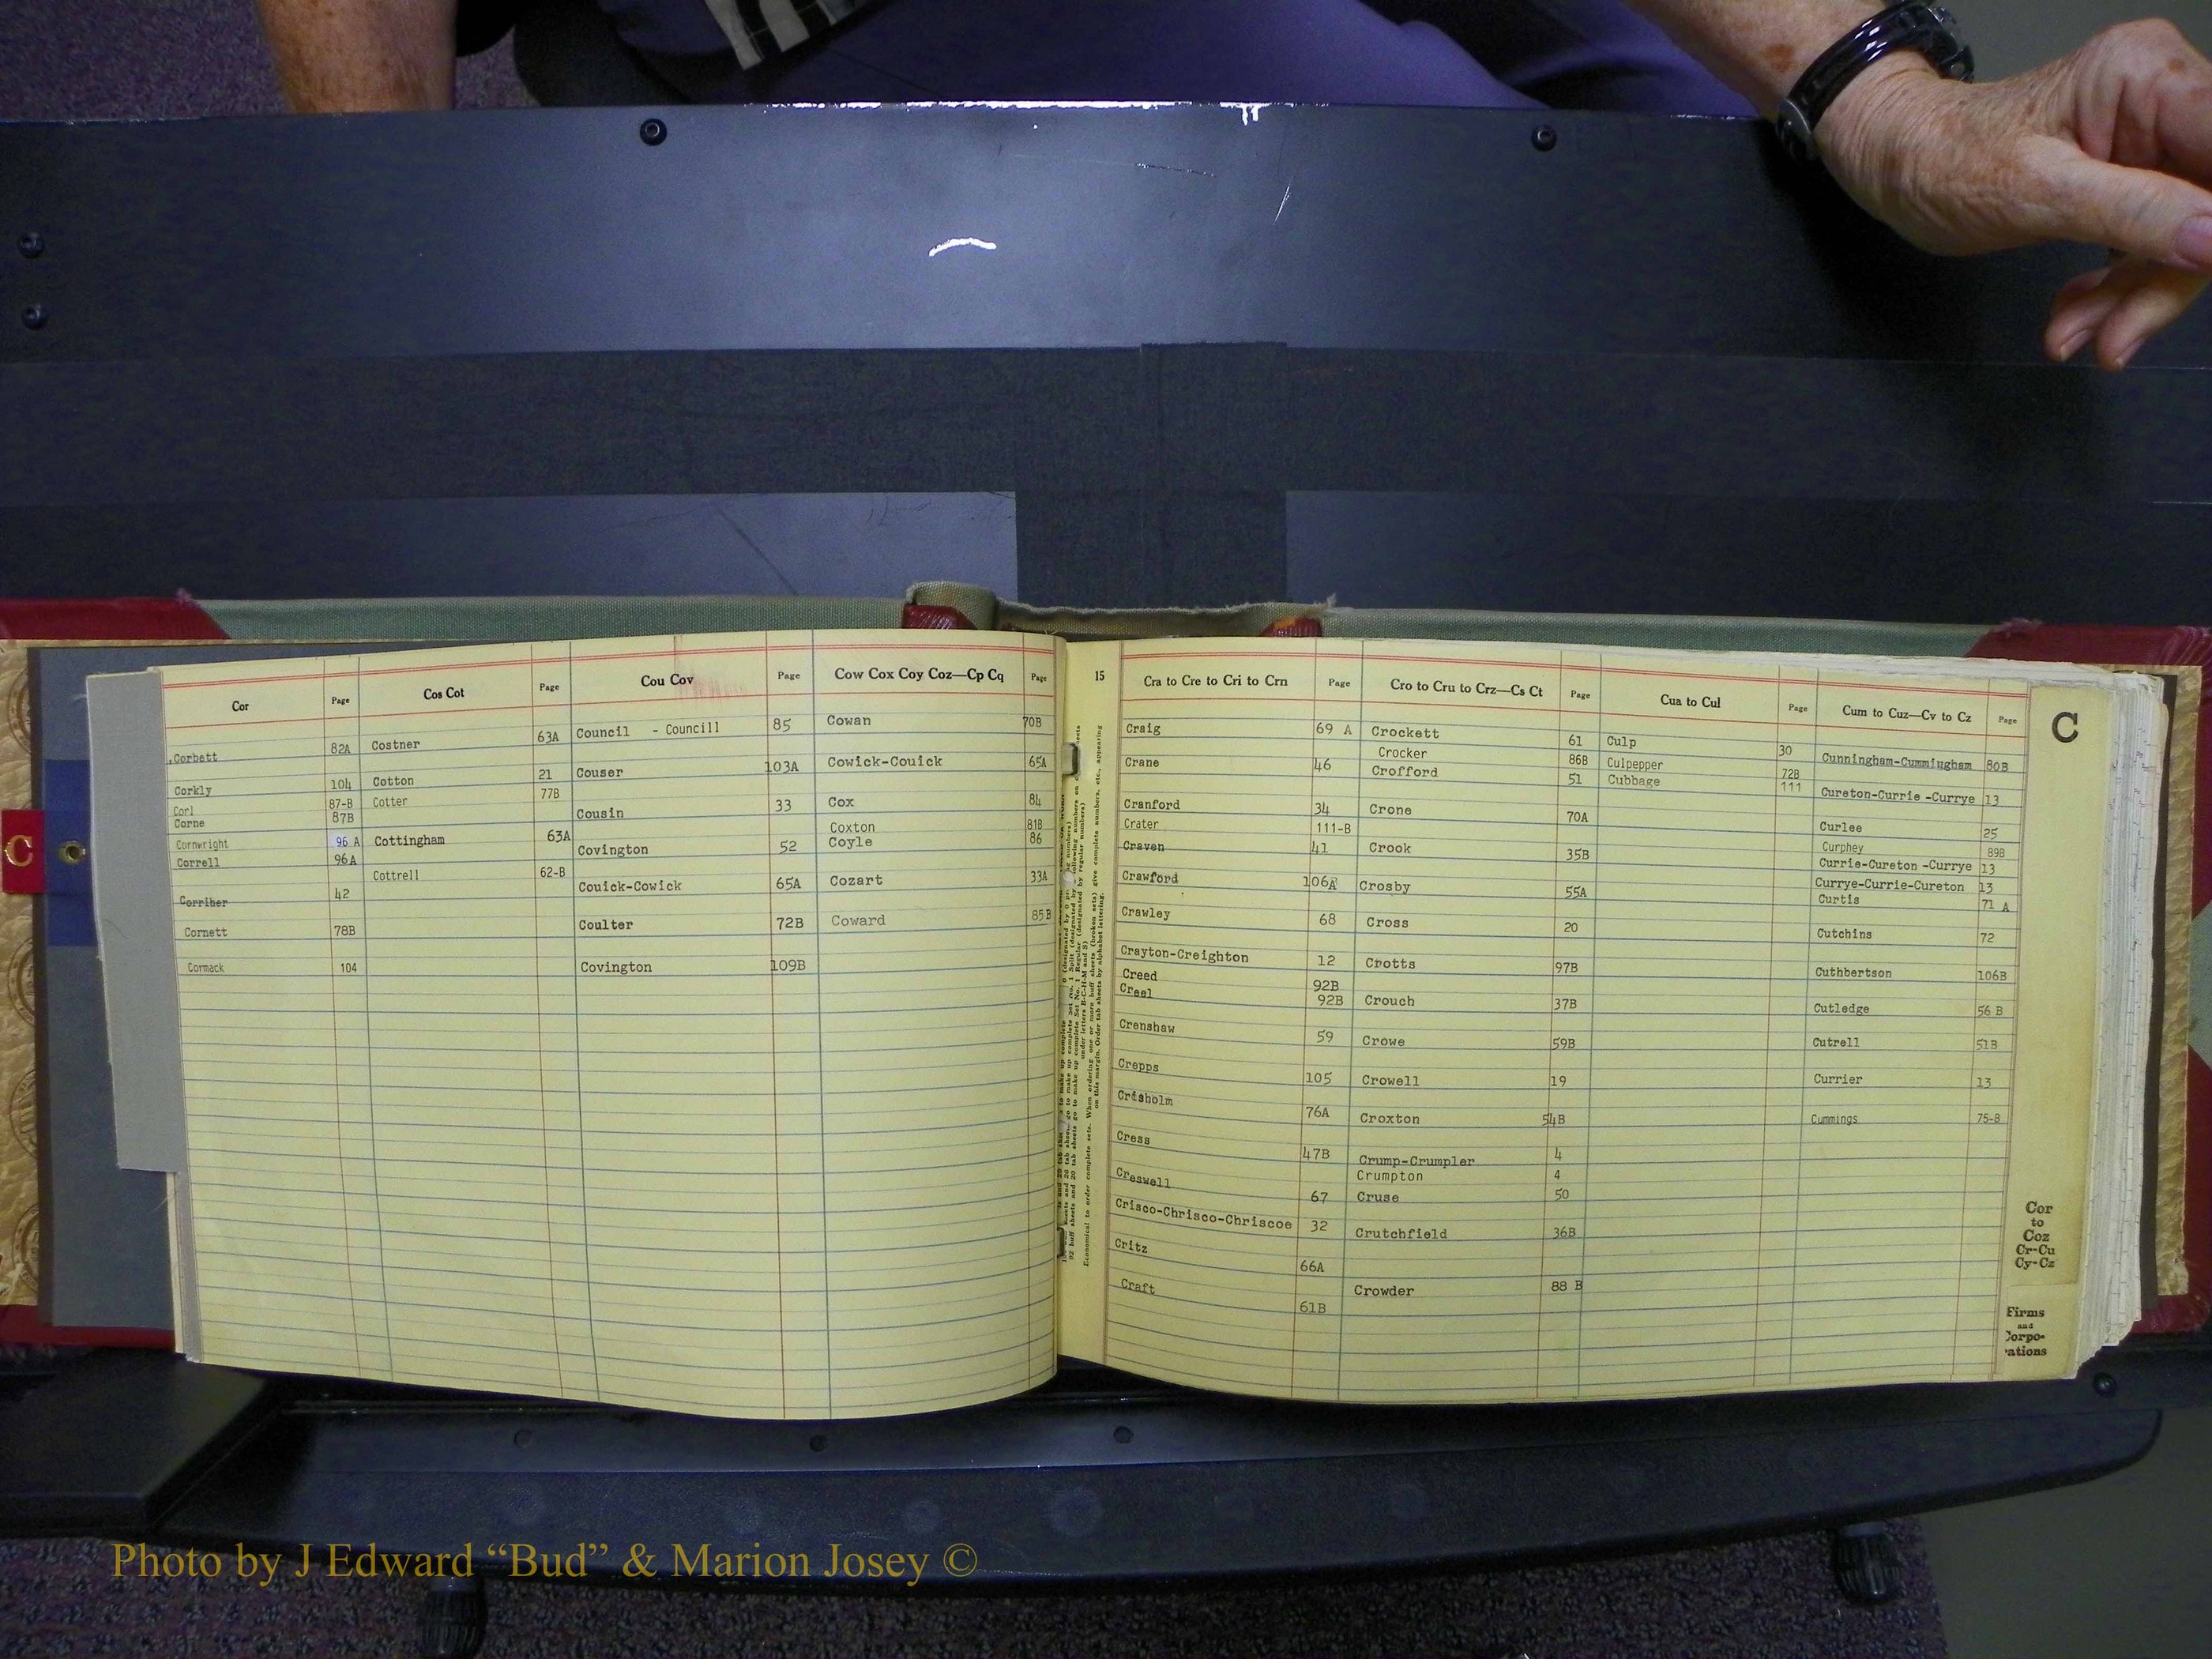 C
Cor Page
Corbett 82A
Corkly 104
Corl 87-B
Corne 87B
Cornwright 96 A
Correll 96A
Corriher 42
Cornett 78B
Cormack 104
Cos Cot Page
Costner 63A
Cotton 21
Cotter 77B
Cottingham 63A
Cottrell 62-B
Cou Cov Page
Council - Councill 85
Couser 103A
Cousin 33
Covington 52
Couick-Cowick 65A
Coulter 72B
Covington 109B
Cow Cox Coy Coz—Cp Cq Page
Cowan 70B
Cowick-Couick 65A
Cox 84
Coxton 81B
Coyle 86
Cozart 33A
Coward 85B
15
under letters B-C-H-M and S)
on this margin. Order tab sheets by alphabet lettering.
Cra to Cre to Cri to Crn Page
Craig 69 A
Crane 46
Cranford 34
Crater 111-B
Craven 41
Crawford 106A
Crawley 68
Crayton-Creighton 12
Creed 92B
Creel 92B
Crenshaw 59
Crepps 105
Crisholm 76A
Cress 47B
Creswell 67
Crisco-Chrisco-Chriscoe 32
Critz 66A
Craft 61B
Cro to Cru to Crz—Cs Ct Page
Crockett 61
Crocker 86B
Crofford 51
Crone 70A
Crook 35B
Crosby 55A
Cross 20
Crotts 97B
Crouch 37B
Crowe 59B
Crowell 19
Croxton 54B
Crump-Crumpler 4
Crumpton 4
Cruse 50
Crutchfield 36B
Crowder 88 B
Cua to Cul Page
Culp 30
Culpepper 72B
Cubbage 111
Cum to Cuz—Cv to Cz Page
Cunningham-Cummingham 80B
Cureton-Currie -Currye 13
Curlee 25
Curphey 89B
Currie-Cureton -Currye 13
Currye-Currie-Cureton 13
Curtis 71 A
Cutchins 72
Cuthbertson 106B
Cutledge 56 B
Cutrell 51B
Currier 13
Cummings 75-8
C
Cor
to
Coz
Cr-Cu
Cy-Cz
Firms
and
Corpo-
ations
Photo by J Edward “Bud” & Marion Josey ©